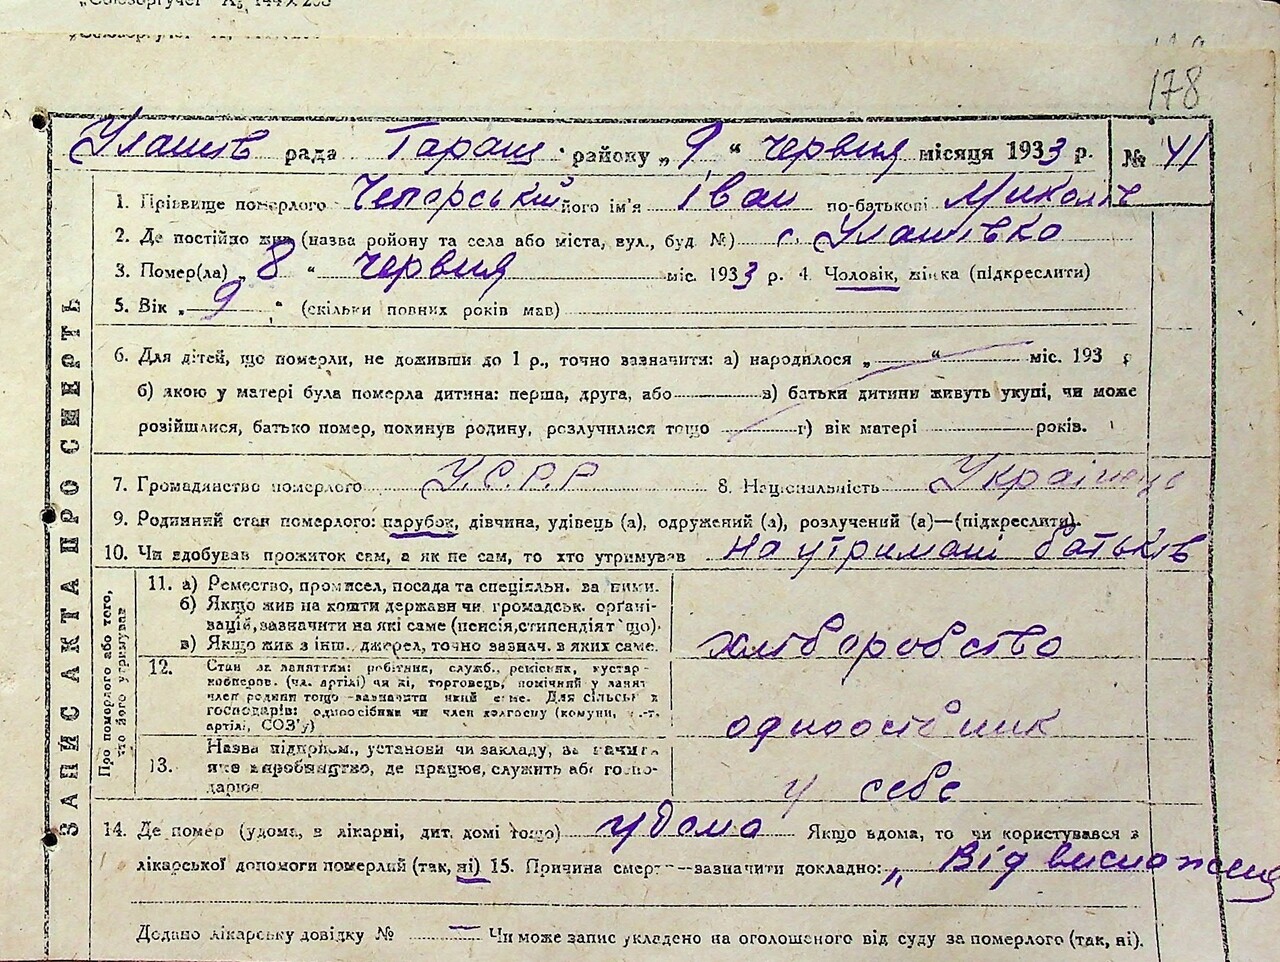 178
Улашів рада Таращ. району „9“ червня місяця 1933 р. № 41
ЗАПИС АКТА ПРО СМЕРТЬ
1. Прізвище померлого Чепорський його ім'я Іван по-батькові Миколич
2. Де постійно жив (назва ройону та села або міста, вул., буд. №) с. Улашівка
3. Помер(ла) „8“ червня міс. 1933 р. 4. Чоловік, жінка (підкреслити)
5. Вік „9“ (скільки повних років мав)
6. Для дітей, що померли, не доживши до 1 р., точно зазначити: а) народилося „ “ міс. 193 р
б) якою у матері була померла дитина: перша, друга, або в) батьки дитини живуть укупі, чи може
розійшлися, батько помер, покинув родину, розлучилися тощо г) вік матері років.
7. Громадянство померлого У.С.Р.Р 8. Національність Українець
9. Родинний стан померлого: парубок, дівчина, удівець (а), одружений (а), розлучений (а)—(підкреслити).
10. Чи здобував прожиток сам, а як не сам, то хто утримував на утримані батьків
Про померлого або того, хто його утримував
11. а) Ремество, промисел, посада та спеціяльн. за ними.
б) Якщо жив на кошти держави чи громадськ. орґані-
зацій, зазначити на які саме (пенсія, стипендіят що).
в) Якщо жив з інш. джерел, точно зазнач. в яких саме.
хліборобство
12. Стан за заняттям: робітник, служб., ремісник, кустар-
кооперов. (чл. артілі) чи ні, торговець, помічний у занят
член родини тощо—зазначити який саме. Для сільськ
господарів: одноосібник чи член колгоспу (комуни,
артілі, СОЗ'у)
одноосібник
13. Назва підприєм., установи чи закладу,
яке виробництво, де працює, служить або госпо-
дарює
у себе
14. Де помер (удома, в лікарні, дит. домі тощо) удома Якщо вдома, то чи користувався з
лікарської допомоги померлий (так, ні) 15. Причина смерт зазначити докладно: „Від виснажен
Додано лікарську довідку № — Чи може запис укладено на оголошеного від суду за померлого (так, ні).